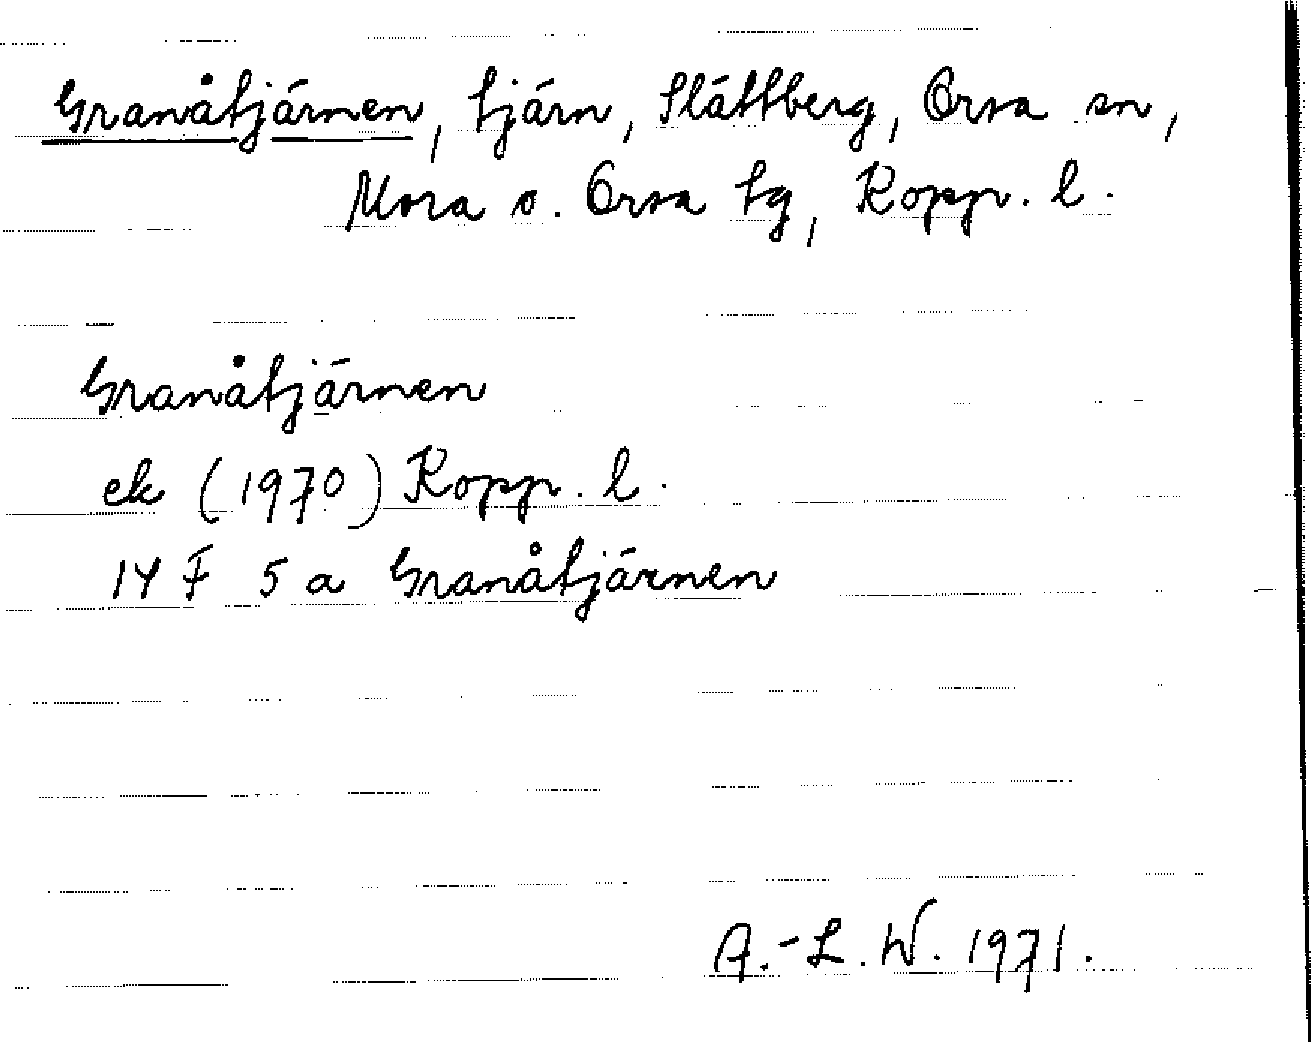 Granåtjärnen, tjärn, Slättberg, Orsa sn,
Mora o. Orsa tg, Kopp. l.
Granåtjärnen
ek (1970) Kopp. l.
14 F 5 a Granåtjärnen
A.-L. W. 1971.